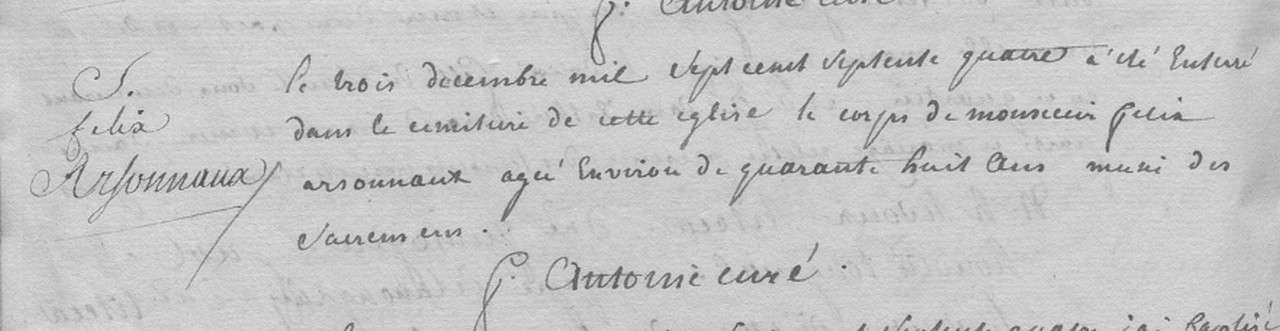 f. Antoine curé
S.
felix
Arsonnaux
le trois decembre mil sept cent septente quatre a été Enterré
dans le cemitiere de cette eglise le corps de monsieur felix
arsonnaux ageé Environ de quarante huit ans muni des
sacremens.
f. Antoine curé.
septente quatre j'ai baptisé